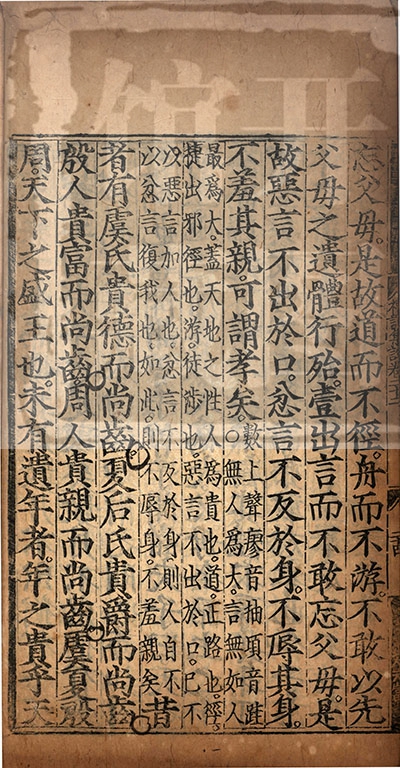 忘父母。是故道而不徑。舟而不游。不敢以先
父母之遺體行殆。壹出言而不敢忘父母。是
故惡言不出於口。忿言不反於身。不辱其身。
不羞其親。可謂孝矣。○數上聲廖音抽頃音跬
無人爲大。言無如人
最爲大蓋天地之性人爲貴也。道。正路也。徑。
捷出邪徑也。游。徒涉也。惡言不出於口。己不
以惡言加人也。忿言不反於身則人自不
以忿言復我也。如此。則不辱身。不羞親矣昔
者有虞氏貴德而尚齒夏后氏貴爵而尚齒
殷人貴富而尚齒周人貴親而尚齒虞夏殷
周。天下之盛王也。未有遺年者。年之貴乎天